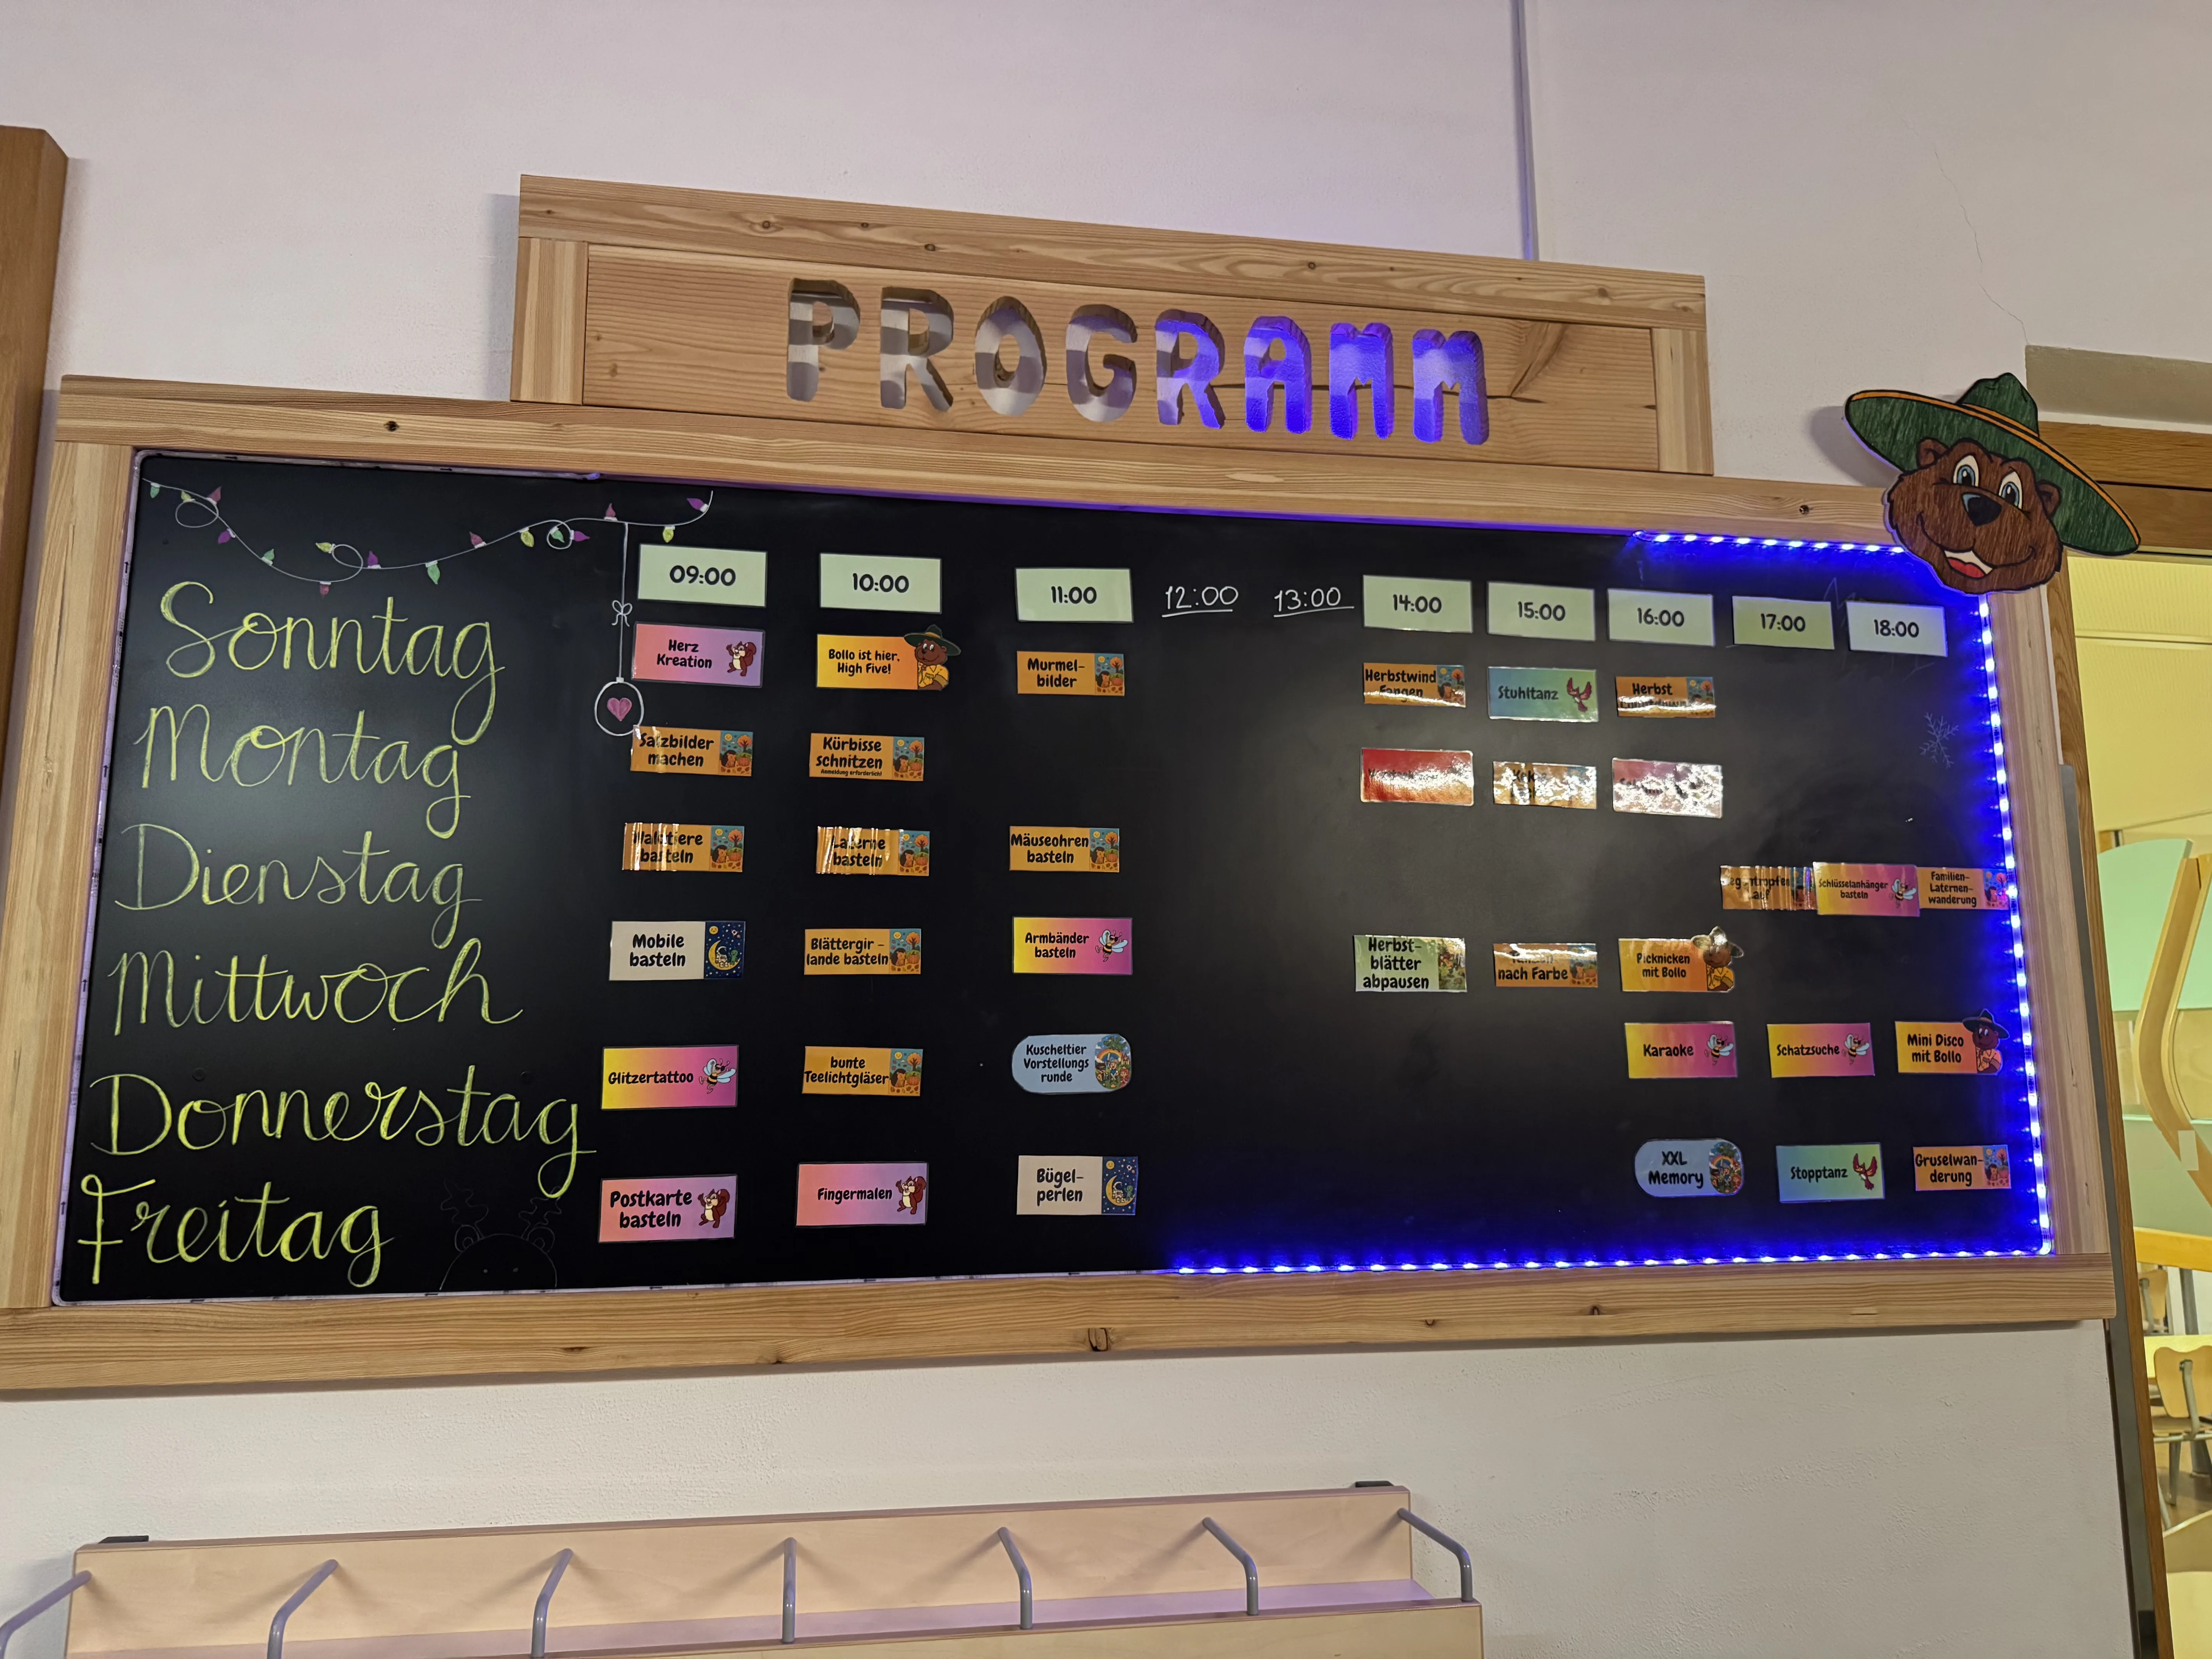 PROGRAMM
09:00 10:00 11:00 12:00 13:00 14:00 15:00 16:00 17:00 18:00
Sonntag
Herz
Kreation
Bollo ist hier,
High Five!
Murmel-
bilder
Herbstwind
Fangen
Stuhltanz
Herbst
Montag
Salzbilder
machen
Kürbisse
schnitzen
Anmeldung erforderlich!
Dienstag
Waldtiere
basteln
Laterne
basteln
Mäuseohren
basteln
Schlüsselanhänger
basteln
Familien-
Laternen-
wanderung
Mittwoch
Mobile
basteln
Blättergir-
lande basteln
Armbänder
basteln
Herbst-
blätter
abpausen
nach Farbe
Picknicken
mit Bollo
Donnerstag
Glitzertattoo
bunte
Teelichtgläser
Kuscheltier
Vorstellungs
runde
Karaoke
Schatzsuche
Mini Disco
mit Bollo
Freitag
Postkarte
basteln
Fingermalen
Bügel-
perlen
XXL
Memory
Stopptanz
Gruselwan-
derung